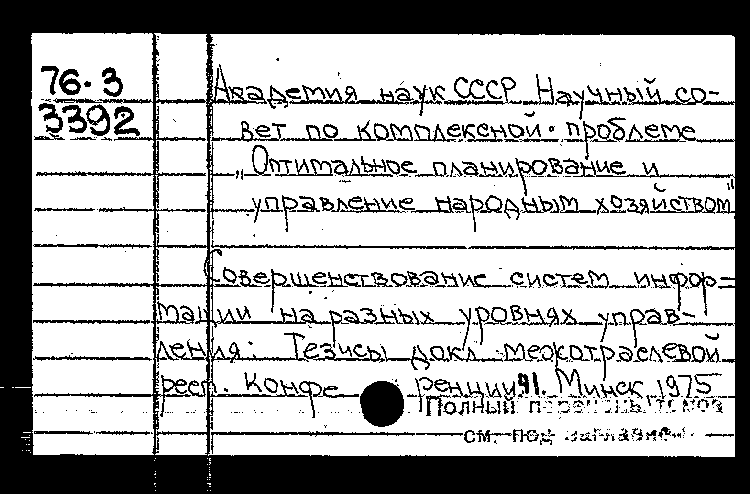 76-3
3392
Академия наук СССР Научный со-
вет по комплексной проблеме
„Оптимальное планирование и
управление народным хозяйством"
Совершенствование систем инфор=
мации на разных уровнях управ-
ления: Тезисы докл межотраслевой
респ. Конфе ренции Ч1. Минск 1975
Полный перечень томов
см. под заглавием